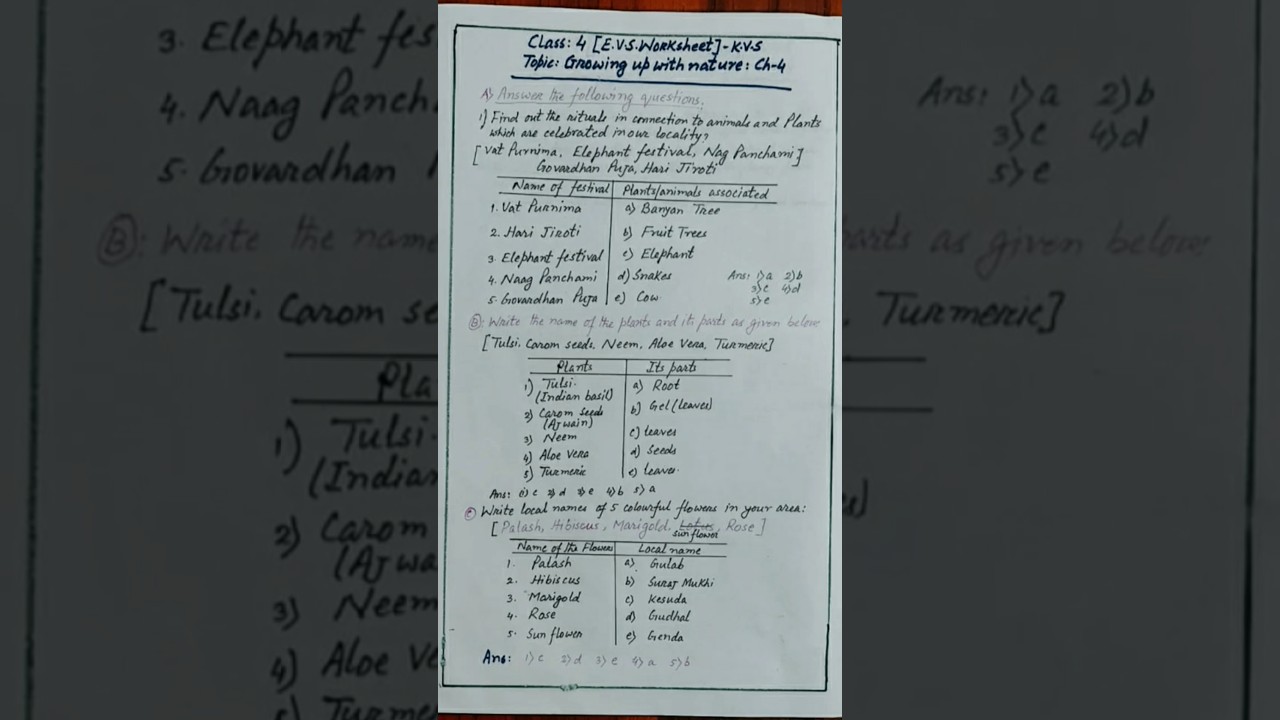 Class: 4 [E.V.S. Worksheet] - K.V.S
Topic: Growing up with nature: Ch-4
A) Answer the following questions.
1) Find out the rituals in connection to animals and Plants
which are celebrated in our locality?
[Vat Purnima, Elephant festival, Nag Panchami]
Govardhan Puja, Hari Jiroti
Name of festival Plants/animals associated
1. Vat Purnima a) Banyan Tree
2. Hari Jiroti b) Fruit Trees
3. Elephant festival c) Elephant
4. Naag Panchami d) Snakes Ans: 1) a 2) b
3) c 4) d
5. Govardhan Puja e) Cow 5) e
B: Write the name of the plants and its parts as given below
[Tulsi, Carom seeds, Neem, Aloe Vera, Turmeric]
Plants Its parts
1) Tulsi. a) Root
(Indian basil)
2) Carom seeds b) Gel (leaves)
(Ajwain)
3) Neem c) leaves
4) Aloe Vera d) Seeds
5) Turmeric e) leaves.
Ans: 1) c 2) d 3) e 4) b 5) a
C Write local names of 5 colourful flowers in your area:
[Palash, Hibiscus, Marigold, Lotus, Rose]
sunflower
Name of the Flowers Local name
1. Palash a) Gulab
2. Hibiscus b) Suraj Mukhi
3. Marigold c) Kesuda
4. Rose d) Gudhal
5. Sun flower e) Genda
Ans: 1) c 2) d 3) e 4) a 5) b
3. Elephant fes
4. Naag Panch
5. Govardhan
B: Write the name
[Tulsi, Carom se
Pla
1) Tulsi.
(Indian
2) Carom
(Ajwa
3) Neem
4) Aloe Ve
5) Turme
Ans: 1) a 2) b
3) c 4) d
5) e
parts as given below
, Turmeric]